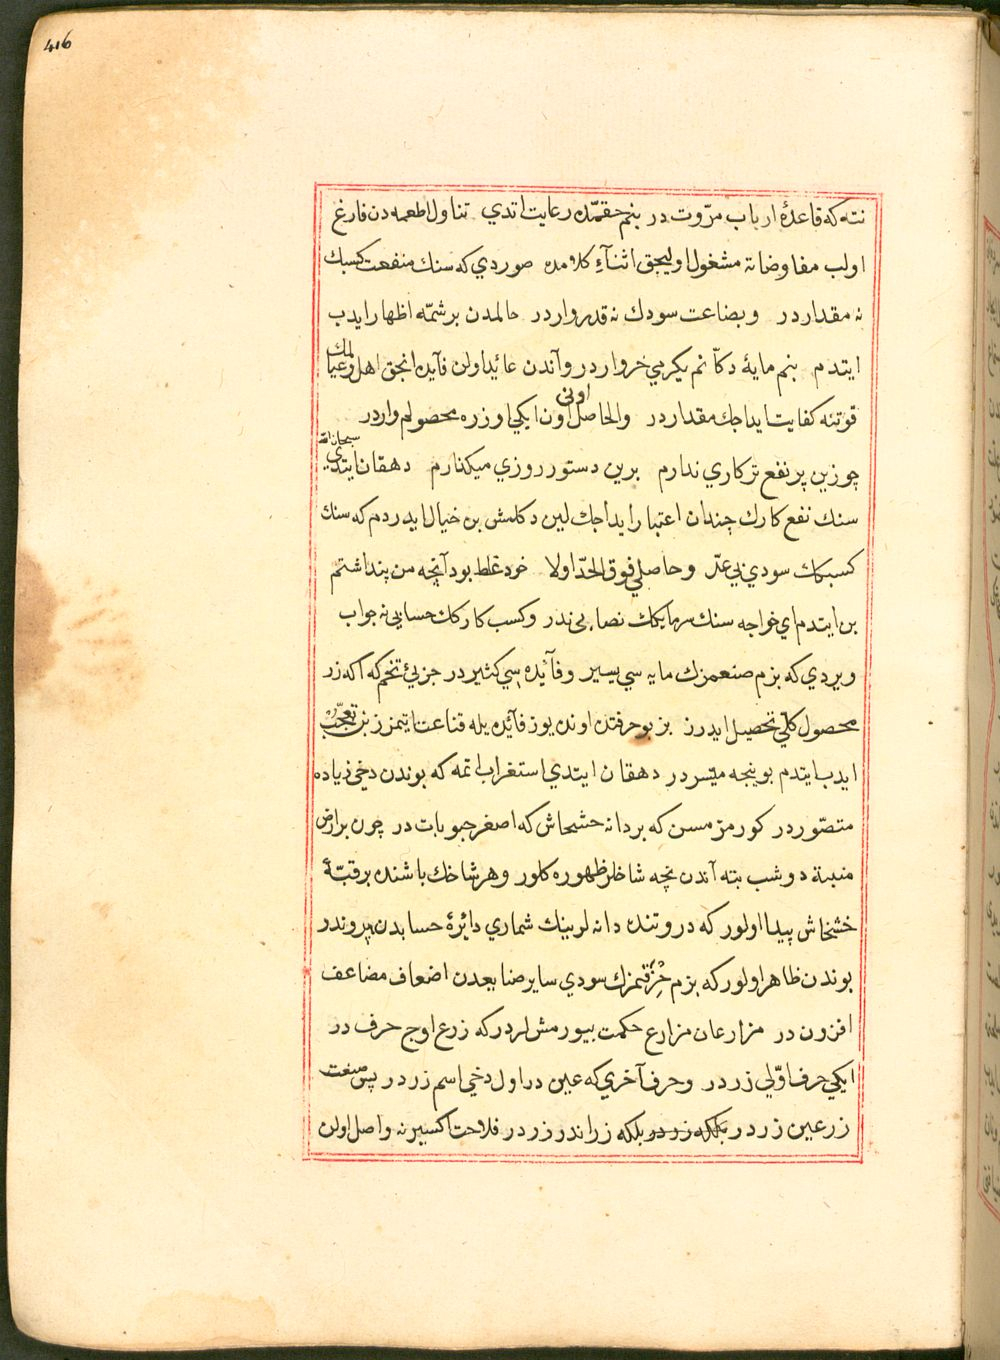 416
نته كه قاعدۀ ارباب مرّوت در بنم حقمّده رعايت اتدي تناول اطعمه دن فارغ
اولب مفاوضاته مشغول اوليجق اثنآءِ كلامده صوردي كه سنك منفعت كسبك
نه مقدار در وبضاعت سودك نه قدر وار در حالمدن برشمّه اظهار ايدب
ايتدم بنم مايۀ دكّانم يكرمي خروار در وآندن عائد اولن فآيده انجق اهل وعيالمك
قوتنه كفايت ايداجك مقدار در والحاصل اون اونى ايكي اوزره محصولم واردر
چو زين پر نفع تر كاري ندارم برين دستور روزي ميكذارم دهقان ايتدي سبحان الله
سنك نفع كارك چندان اعتبار ايداجك لين دكلمش بن خيال ايدردم كه سنك
كسبكك سودي بي عدّ وحاصلي فوق الحدّ اولا خود غلط بود آنچه من پنداشتم
بن ايتدم اي خواجه سنك سرمايكك نصابى ندر وكسب كاركك حسابي نه جواب
ويردي كه بزم صنعمزك مايه سي يسير وفآيده سي كثير در جزيئ تخم كه اكه ‌زر
محصول كلّي تحصيل ايدرز بز بو حرفتدن اوندن يوز فآئده يله قناعت ايتمزز بن تعجّب
ايدب ايتدم بو نيجه ميّسر در دهقان ايتدي استغراب اتمه كه بوندن دخي زياده
متصّور در كورمزمسن كه بر دانه خشخاش كه اصغر حبوبات در چون بر ارض
منبتة دوشب بته آندن نچه شاخلر ظهوره كلور وهر شاخك باشنده بر قبّۀ
خشخاش پيدا اولور كه دروننده دانه لرينك شماري دائرۀ حسابدن بيروندر
بوندن ظاهر اولور كه بزم حِرْفتمزك سودي ساير صنايعدن اضعاف مضاعف
افزون در مزارعان مزارع حكمت بيورمشلردر كه زرع اوچ حرف در
ايكي حرف اوّلي زر در وحرف آخري كه عين در اول دخي اسم زر در پس صنعت
زر عين زر در بلكه زر در بلكه زر اندر زر در فلاحت اكسيرنه واصل اولن